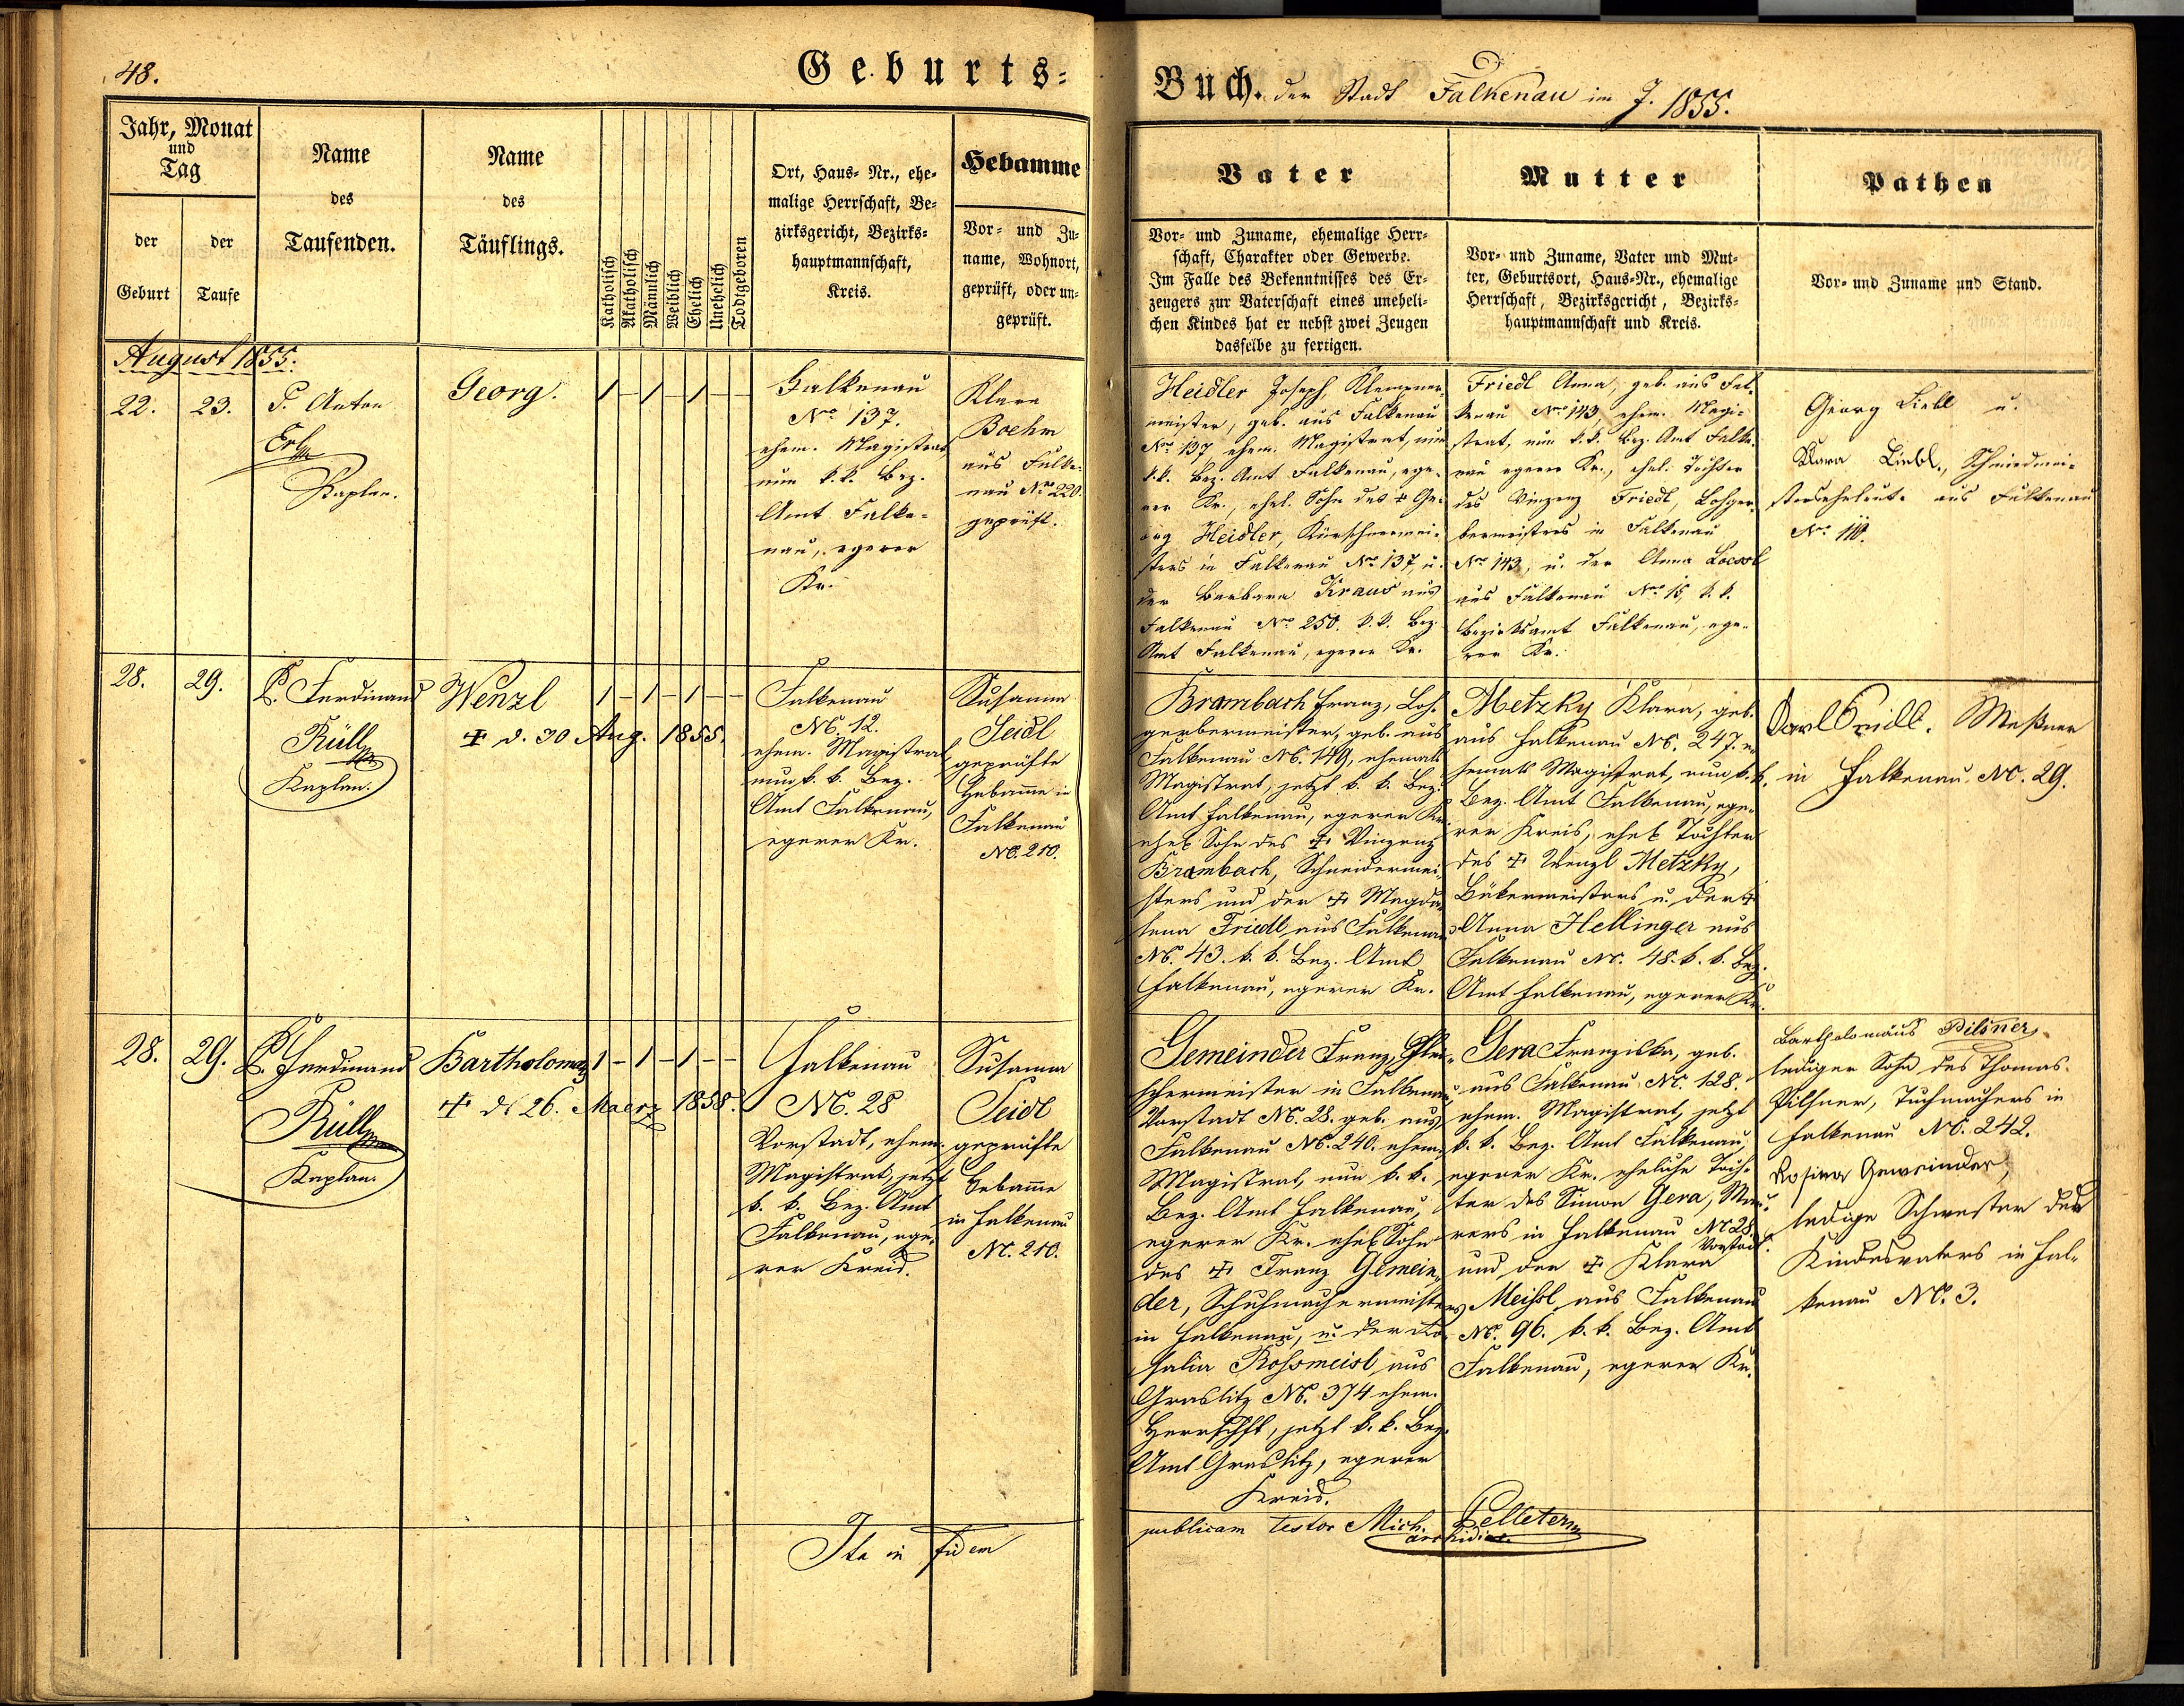 48.
Geburts-
Buch. der Stadt Falkenau im J. 1855.
Jahr, Monat
und
Tag
der
Geburt
der
Taufe
Name
des
Taufenden.
Name
des
Täuflings.
Katholisch
Akatholisch
Männlich
Weiblich
Ehelich
Unehelich
Todtgeboren
Ort, Haus- Nr., ehe-
malige Herrschaft, Be-
zirksgericht, Bezirks-
hauptmannschaft,
Kreis.
Hebamme
Vor- und Zu-
name, Wohnort,
geprüft, oder un-
geprüft.
Vater
Vor- und Zuname, ehemalige Herr-
schaft, Charakter oder Gewerbe.
Im Falle des Bekenntnisses des Er-
zeugers zur Vaterschaft eines uneheli-
chen Kindes hat er nebst zwei Zeugen
dasselbe zu fertigen.
Mutter
Vor- und Zuname, Vater und Mut-
ter, Geburtsort, Haus-Nr., ehemalige
Herrschaft, Bezirksgericht, Bezirks-
hauptmannschaft und Kreis.
Pathen
Vor- und Zuname und Stand.
August 1855.
22.
23.
P. Anton
Erl
Kaplan.
Georg.
1 – 1 – 1 – –
Falkenau
Nro 137.
ehem. Magistrat,
nun k.k. Bez.
Amt Falke-
nau, egerer
Kr.
Klara
Boehm
aus Falke-
nau Nro 220.
geprüft.
Heidler Joseph, Klempner-
meister, geb. aus Falkenau
Nro 137 ehem. Magistrat, nun
k.k. Bez. Amt Falkenau, ege-
rer Kr., ehel. Sohn des ☩ Ge-
org Heidler, Kürschnermei-
sters in Falkenau Nro 137, u.
der Barbara Kraus aus
Falkenau Nro 250. k.k. Bez.
Amt Falkenau, egerer Kr.
Friedl Anna, geb. aus Fal-
kenau Nro 143, ehem. Magi-
strat, nun k.k. Bez. Amt Falke-
nau egerer Kr., ehel. Tochter
des Vinzenz Friedl, Lohger-
bermeisters in Falkenau
Nro 143, u. der Anna
aus Falkenau Nro 15, k.k.
Bezirksamt Falkenau, ege-
rer Kr.
Georg Liebl u.
Klara Liebl, Schmiedmei-
stereheleute aus Falkenau
Nro 110.
28.
29.
P. Ferdinand
Rüll
Kaplan.
Wenzl
☩ d. 30 Aug. 1855.
1 – 1 – 1 – –
Falkenau
No. 12.
ehem. Magistrat
nun k. k. Bez.
Amt Falkenau,
egerer Kr.
Susanna
Seidl
geprüfte
Hebamme in
Falkenau
No. 210.
Brambach Franz, Loh-
gerbermeister, geb. aus
Falkenau No. 149, ehemals
Magistrat, jetzt k. k. Bez.
Amt Falkenau, egerer Kr.
ehel. Sohn des ☩ Vinzenz
Brambach, Schneidermei-
sters und der ☩ Magda-
lena Friedl aus Falkenau
No. 43. k. k. Bez. Amt
Falkenau, egerer Kr.
Metzky Klara, geb.
aus Falkenau No. 247. e-
hemals Magistrat, nun k.k.
Bez. Amt Falkenau, ege-
rer Kreis, ehel. Tochter
des ☩ Wenzl Metzky,
Bäkermeisters u. der ☩
Anna Hellinger aus
Falkenau No. 48. k. k. Bez.
Amt Falkenau, egerer Kr.
Karl Meßner
in Falkenau No. 29.
28.
29.
P. Ferdinand
Rüll
Kaplan.
Bartholomaeus
☩ d. 26. Maerz 1858.
1 – 1 – 1 – –
Falkenau
No. 28
Vorstadt, ehem.
Magistrat, jetzt
k. k. Bez. Amt
Falkenau, ege-
rer Kreis.
Susanna
Seidl
geprüfte
Hebamme
in Falkenau
No. 210.
Gemeinder Franz, Flei-
schermeister in Falkenau,
Vorstadt No. 28. geb. aus
Falkenau No. 240. ehem.
Magistrat, nun k. k.
Bez. Amt Falkenau,
egerer Kr. ehel. Sohn
des ☩ Franz Gemein-
der, Schuhmachermeisters
in Falkenau, u. der Ro-
salia Rossmeisl aus
Graslitz No. 374 ehem.
Herrschft, jetzt k. k. Bez.
Amt Graslitz, egerer
Kreis.
Gera Franziska, geb.
aus Falkenau No. 128.
ehem. Magistrat, jetzt
k. k. Bez. Amt Falkenau,
egerer Kr. eheliche Toch-
ter des Simon Gera, Mau-
rers in Falkenau No 28
Vorstadt.
und der ☩ Klara
Meissl aus Falkenau
No. 96. k. k. Bez. Amt
Falkenau, egerer Kr.
Bartholomäus Pilsner,
lediger Sohn des Thomas
Pilsner, Tuchmachers in
Falkenau No. 242.
Rosina Gemeinder,
ledige Schwester des
Kindesvaters in Fal-
kenau No. 3.
Ita in fidem
publicam testor Mich. Pelleter
archidiac.